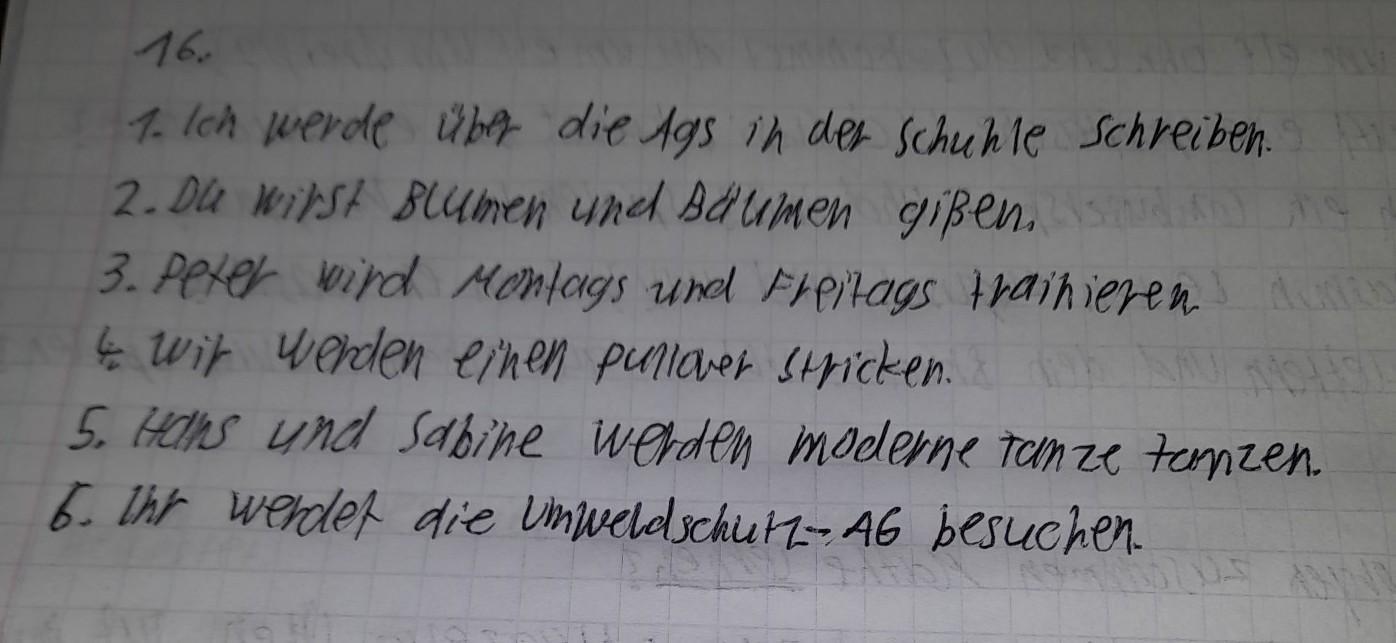 16.
1. Ich werde über die Ags in der Schuhle schreiben.
2. Du wirst Blumen und Bäumen gißen.
3. Peter wird Montags und Freitags trainieren
4. Wir werden einen pullover stricken.
5. Hans und Sabine werden moderne Tanze tanzen.
6. Ihr werdet die Umweldschutz-AG besuchen.